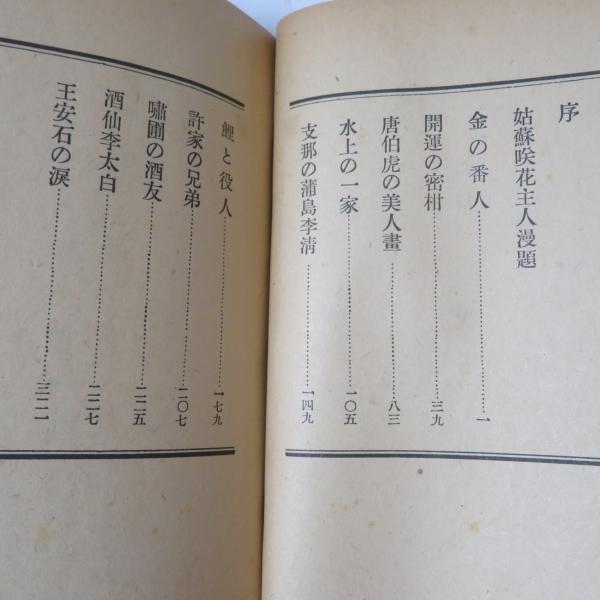 序
姑蘇咲花主人漫題
金の番人……一
開運の密柑……三九
唐伯虎の美人畫……八三
水上の一家……一〇五
支那の蒲島李清……一四九
鯉と役人……一七九
許家の兄弟……二〇七
嘯圃の酒友……二二五
酒仙李太白……二二七
王安石の涙……三二一